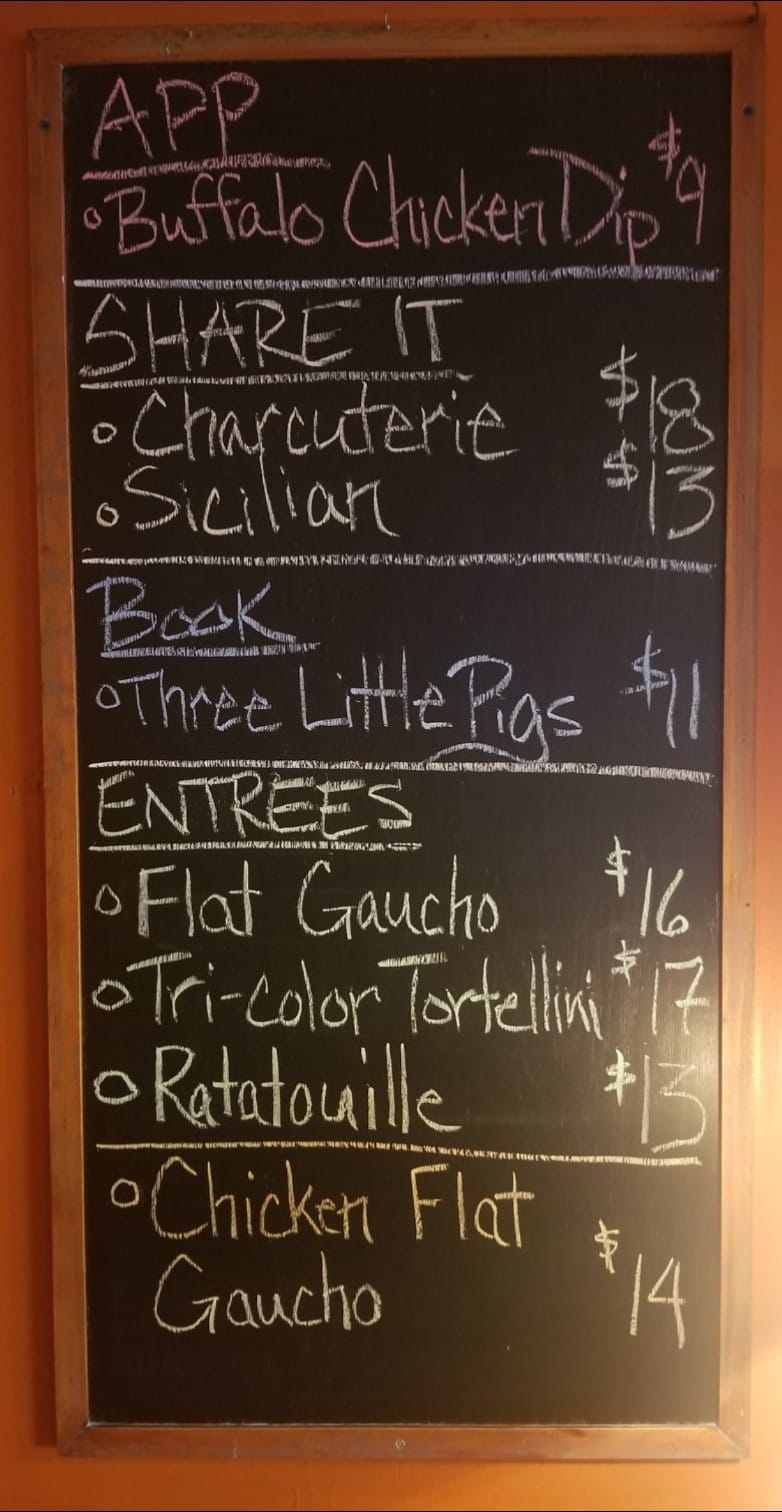 APP
Buffalo Chicken Dip $9
SHARE IT
Charcuterie $18
Sicilian $13
Book
Three Little Pigs $11
ENTREES
Flat Gaucho $16
Tri-color Tortellini $17
Ratatouille $13
Chicken Flat
Gaucho $14